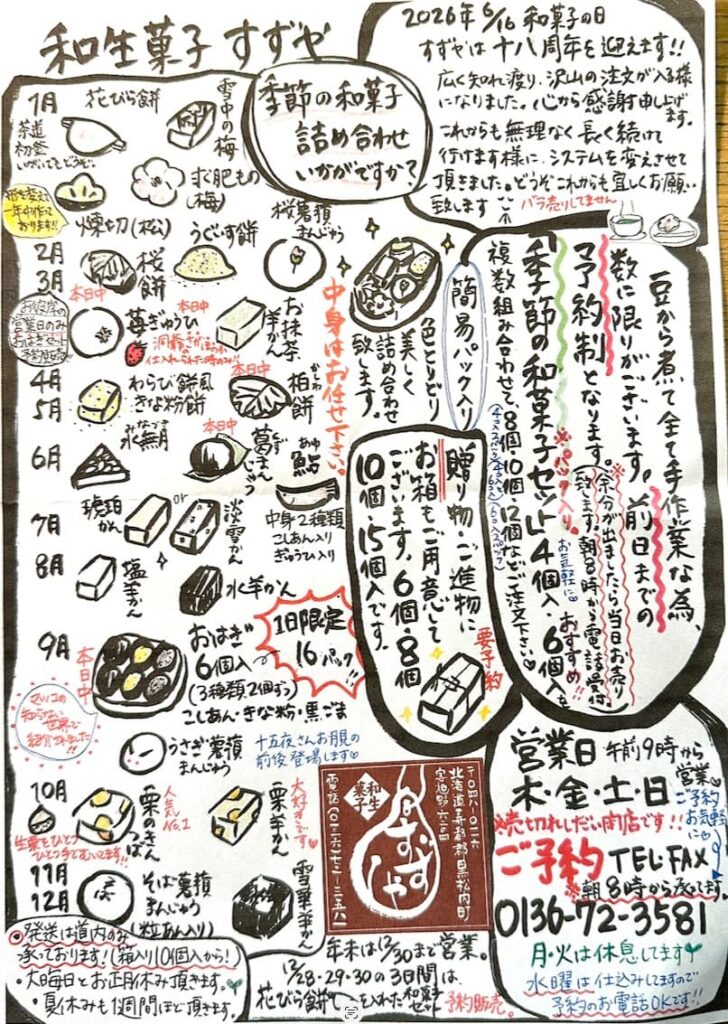 和生菓子 すずや
2026年6/16 和菓子の日
すずやは十八周年を迎えます!!
広く知れ渡り、沢山の注文が入る様
になりました。心から感謝申し上げ
ます。
これからも無理なく長く続けて
行けます様に、システムを変えさせて
頂きました。どうぞこれからも宜しくお願い
致します
バラ売りしてません
季節の和菓子
詰め合わせ
いかがですか?
1月
花びら餅
茶道
初釜
いかがでしょうか
雪中の梅
求肥もの
(梅)
形を変えて
年中作って
おります!!
煉切(松)
うぐいす餅
桜薯蕷
まんじゅう
2月
3月
桜餅
本日中
お彼岸の
営業日のみ
おはぎセット
予約販売
苺ぎゅうひ
本日中
仕入れられた時のみ!!
お抹茶
羊かん
4月
5月
わらび餅風
きな粉餅
本日中
柏餅
かしわ
6月
みなづき
水無月
本日中
葛まんじゅう
くず
あゆ
鮎
中身2種類
こしあん入り
ぎゅうひ入り
7月
琥珀かん
or
淡雪かん
8月
塩羊かん
水羊かん
9月
本日中
おはぎ
6個入
(3種類2個ずつ)
こしあん・きな粉・黒ごま
1日限定
16パック!!
マツコの
知らない
世界で
紹介されました!!
うさぎ薯蕷
まんじゅう
十五夜さんお月見の
前後登場します♡
10月
人気
No.1
栗きんとん
大好きです♡
栗羊かん
生栗をひとつ
ひとつ手でむいてます!!
11月
12月
そば薯蕷
まんじゅう
(粒あん入り)
雪華羊かん
中身はお任せ下さい。
色とりどり
美しく
詰め合わせ
致します。
簡易パック入り
豆から煮て全て手作業な為、
数に限りがございます。前日までの
予約制となります。
(余分が出ましたら当日お売り
致します。朝8時から電話受付。)
季節の和菓子セット4個入・6個入を
※パック入り。
お気軽に♡
おすすめ!!
複数組み合わせて、8個・10個・12個などご注文下さい♡
贈り物・ご進物に
お箱もご用意して
ございます。6個・8個
10個・15個入です。
要予約
和生菓子
すずや
〒048-0126
北海道寿都郡黒松内町
電話0136-72-3581
営業日 午前9時から
営業♡
木・金・土・日
ご予約
お気軽に
※売り切れしだい閉店です!!
ご予約 TEL・FAX
※朝8時から承ります
0136-72-3581
月・火は休息してます
水曜は仕込みしてますので
予約のお電話OKです!!
・発送は道内のみ
承っております!(箱入り10個入から!)
・大晦日とお正月休み頂きます。
・夏休みも1週間ほど頂きます。
年末は12/30まで営業。
12/28・29・30の3日間は、
花びら餅もいれた和菓子セット予約販売。